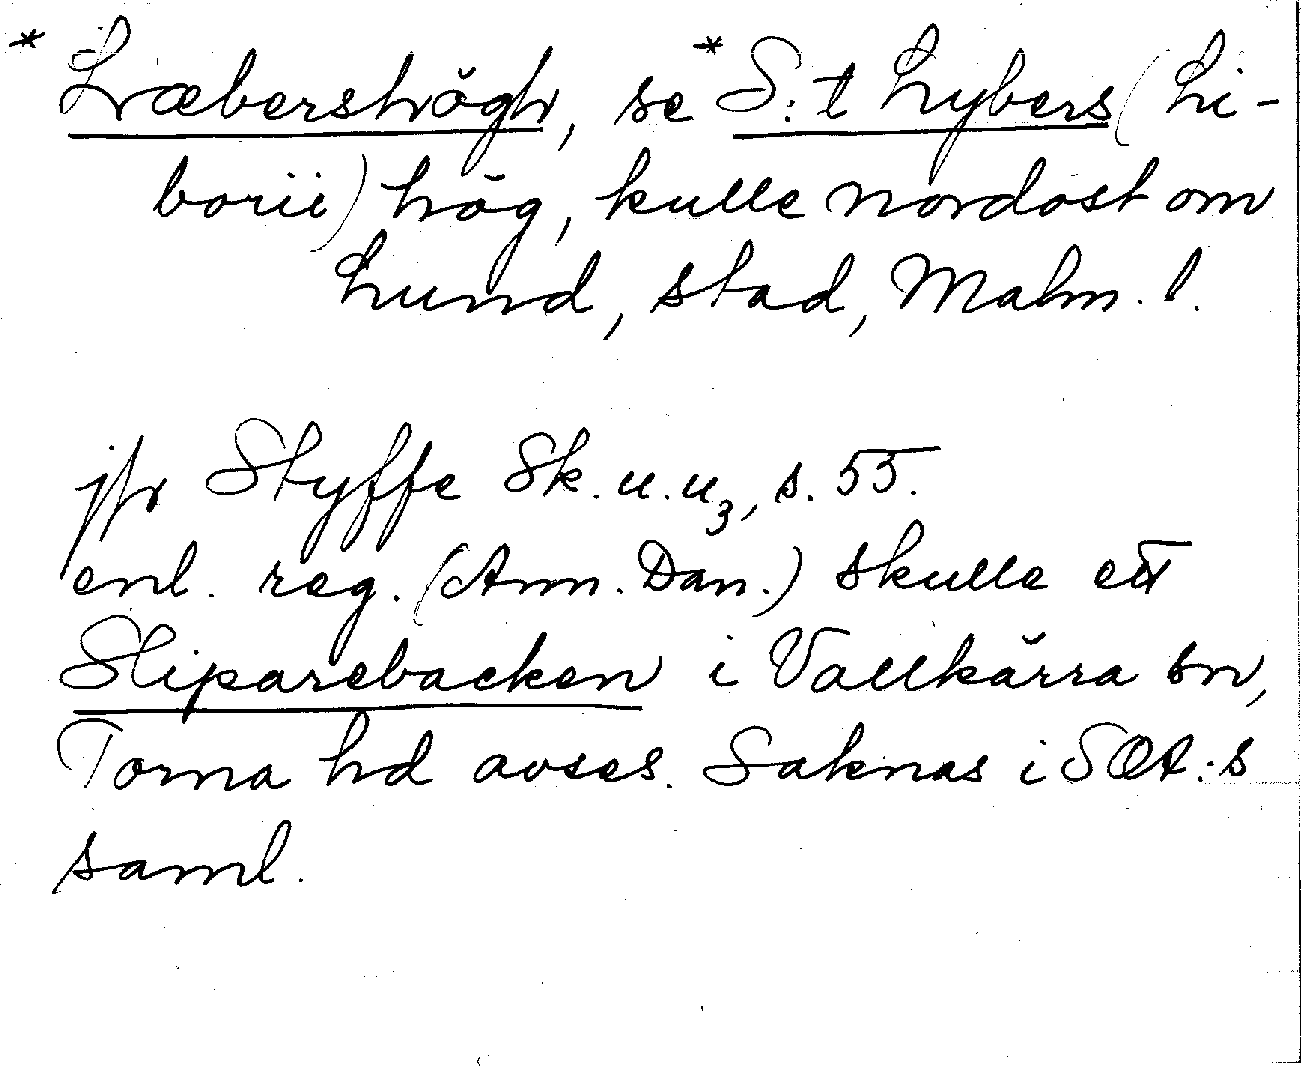 * Læbershögh, se * S:t Lybers (Li-
borii) hög, kulle nordost om
Lund, stad, Malm. l.
jfr Styffe Sk. u. u₃, s. 55.
enl. reg. (Ann. Dan.) skulle ett
Sliparebacken i Vallkärra sn,
Torna hd avses. Saknas i SOA:s
saml.